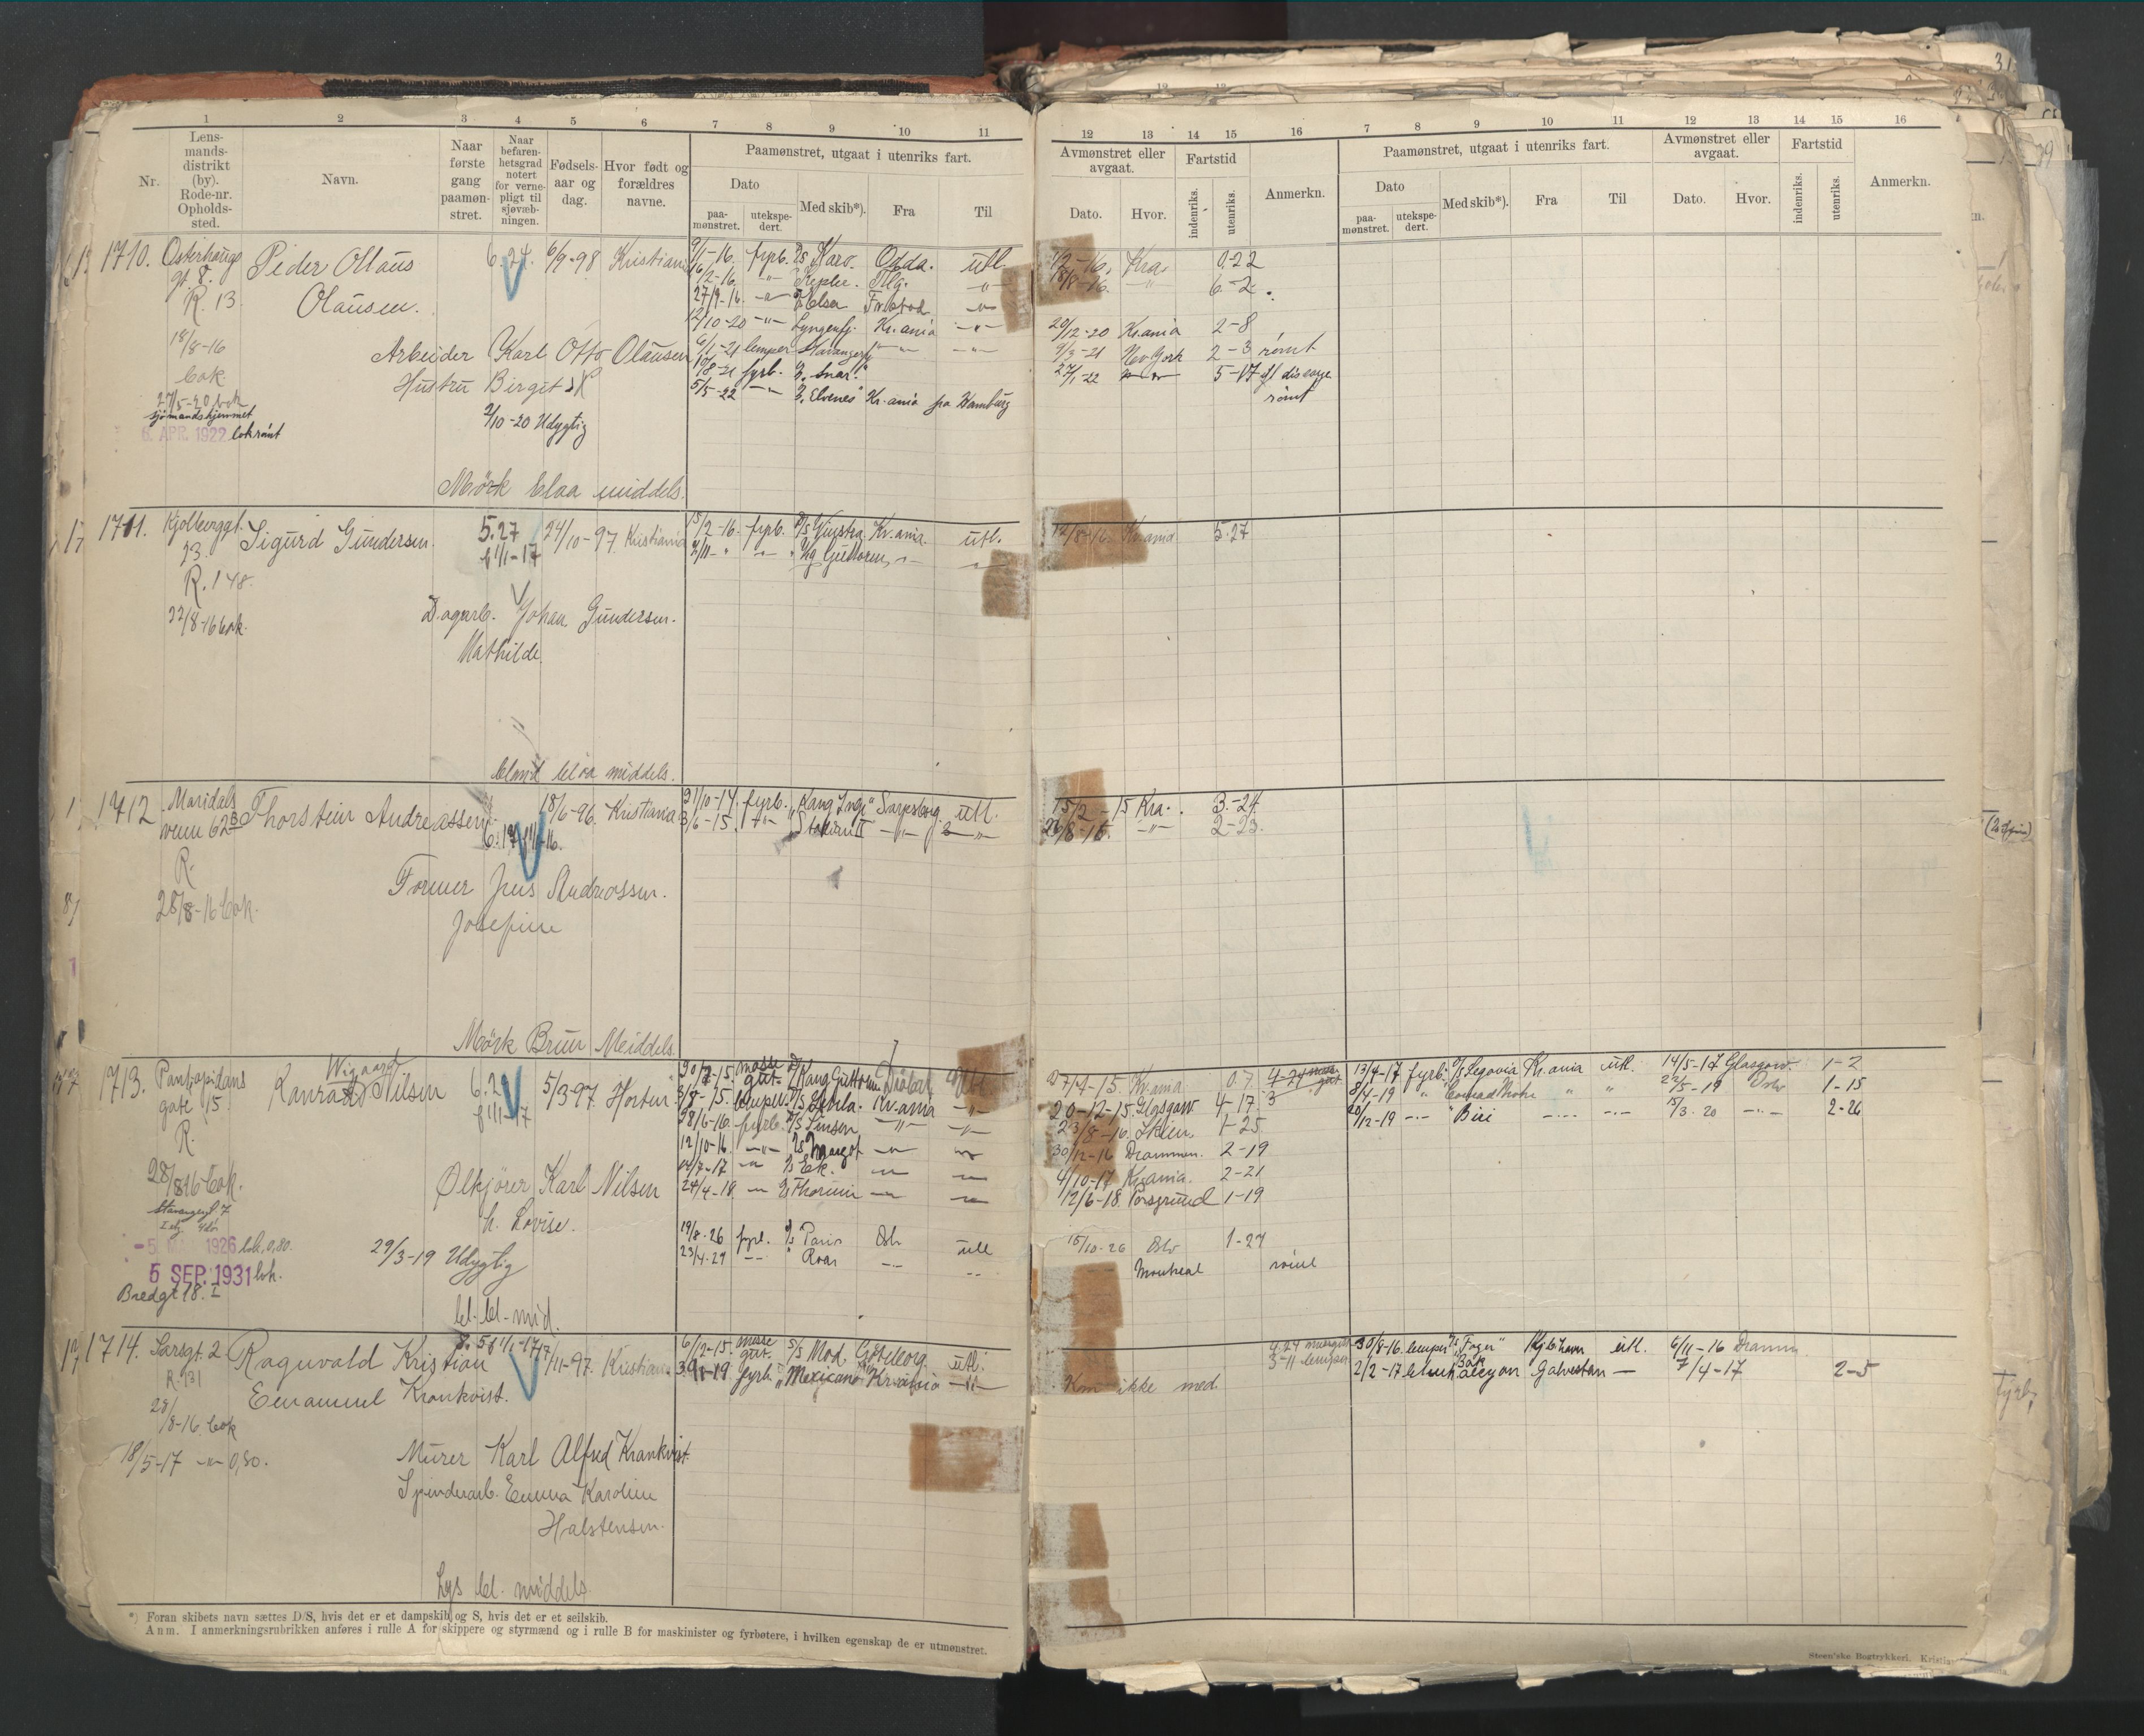 1 2 3 4 5 6 7 8 9 10 11
Nr.
Lens-
mands-
distrikt
(by).
Rode-nr.
Opholds-
sted.
Navn.
Naar
første
gang
paamøn-
stret.
Naar
befaren-
hetsgrad
notert
for verne-
pligt til
sjøvæb-
ningen.
Fødsels-
aar og
dag.
Hvor født og
forældres
navne.
Paamønstret, utgaat i utenriks fart.
Dato
paa-
mønstret.
utekspe-
dert.
Med skib*).
Fra
Til
12 13 14 15 16 7 8 9 10 11 12 13 14 15 16
Avmønstret eller
avgaat.
Dato. Hvor.
Fartstid
indenriks.
utenriks.
Anmerkn.
Paamønstret, utgaat i utenriks fart.
Dato
paa-
mønstret.
utekspe-
dert.
Med skib*). Fra Til
Avmønstret eller
avgaat.
Dato. Hvor.
Fartstid
indenriks.
utenriks.
Anmerkn.
1710. Osterhaugs
gt. 8.
R. 13
Peder Olaus
Olausen.
6.24. 6/9-98 Kristiania
18/8-16
bok
27/5-20 bok
sjømandshjemmet
6. APR. 1922 bok rømt
Arbeider Karl Otto Olausen
Hustru Birgit
2/10-20 Udygtig
Mørk blaa middels.
9/1-16. fyrb. D/s Karo. Odda. utl.
16/2-16. -"- Kepler. -"-
27/9-16. -"- Elsa Fredrstad -"-
12/10-20 -"- Lyngenfj. Kr.ania -"-
6/1-21 lemper Stavangerfj -"- -"-
10/8-21 fyrb. "Snar."
5/5-22 -"- "Elvenes" Kr.ania fra Hamburg
1/2-16. Kra. 0.22
18/8-16. -"- 6-2.
20/12-20 Kr.ania 2-8
9/3-21 New York 2-3 rømt
27/1-22 5-17 rømt
1711. Kjølberggt.
23.
R. 148.
22/8-16 bok.
Sigurd Gundersen.
5.27
f 1/1-17
24/10-97. Kristiania
Dagarb. Johan Gundersen.
Mathilde.
bland blaa middels.
15/2-16. fyrb. D/s Gjustra Kr.ania. utl.
2/11- " -"- Kg Guttorm -"-
12/8-16. Kr.ania 5.27
1712 Maridals
veien 62B
R.
28/8-16 bok.
Thorstein Andreassen
18/6-96. Kristiania
Former Jens Andreassen.
Josefine
Mørk Brun Meiddels
21/10-14. fyrb. "Kong Inge" Sarpsborg utl.
3/6-15. -"- Stokern II -"- -"-
15/2-15 Kra. 3.-24.
26/8-15. -"- 2-23.
1713. Pantopidans
gate 15.
R.
28/8 16 bok.
Stavangergt 7
- 5 1926 bok. 0,80.
5 SEP. 1931 bok.
Bredgt 18. I
Wigaart
Konrad Nilsen
6.29
f 1/1-17
5/3-97. Horten
Ølkjører Karl Nilsen
h. Lovise.
29/3-19 Udygtig
bl. bl. mid.
30/7-15. messe
gut. D/s Kong Guttorm Drøbak utl.
3/8-15. lemper. D/s Kr.ania -"-
28/6-16. fyrb. D/s Sinsen -"- -"-
12/10-16 -"- D/s Margot -"- -"-
14/7-17 -"- D/s Eek. -"- -"-
24/4-18. -"- D/s Thorunn -"- -"-
19/8-26 fyrb. D/s Paris Oslo utl
23/4-27 -"- " Roar -"- -"-
27/7-15. Kr.ania 0.7.
20-12-15. Glasgow 4-17
23/8-16. Skien 1-25
30/12-16 Drammen. 2-19
4/10-17 Kr.ania. 2-21
12/6-18. Porsgrund 1-19
15/10-26 Oslo 1-27
Montreal rømt
13/4-17 fyrb. D/s Segovia Kr.ania utl. 14/5-17 Glasgow 1-2
8/4-19 " Conrad Mohr " " 22/5-19 Oslo 1-15
20/12-19 -"- "Biri -"- -"- 15/3.20 -"- 2-26
1714. Sarsgt. 2
R. 131
28/8-16 bok
18/5-17 -"- 0,80.
Ragnvald Kristian
Emanuel Krankvist.
17/11-97. Kristiania
Murer Karl Alfred Krankvist.
Spinderarb. Emma Karoline
Halstensen.
Lys bl. middels.
6/12-15. messe
gut. S/s Mod Göteborg utl.
fyrb. "Mexicano" Kr.ania -"-
Kom ikke med.
3-11 lemper
30/8-16. lemper D/s "Fager" Kjøbhavn utl. 6/11-16 Dramm.
2/2-17 Bark Alcyon Galvestan — 7/4-17 2-5
*) Foran skibets navn sættes D/S, hvis det er et dampskib, og S, hvis det er et seilskib.
Anm. I anmerkningsrubrikken anføres i rulle A for skippere og styrmænd og i rulle B for maskinister og fyrbøtere, i hvilken egenskap de er utmønstret.
Steen'ske Bogtrykkeri. Kristia